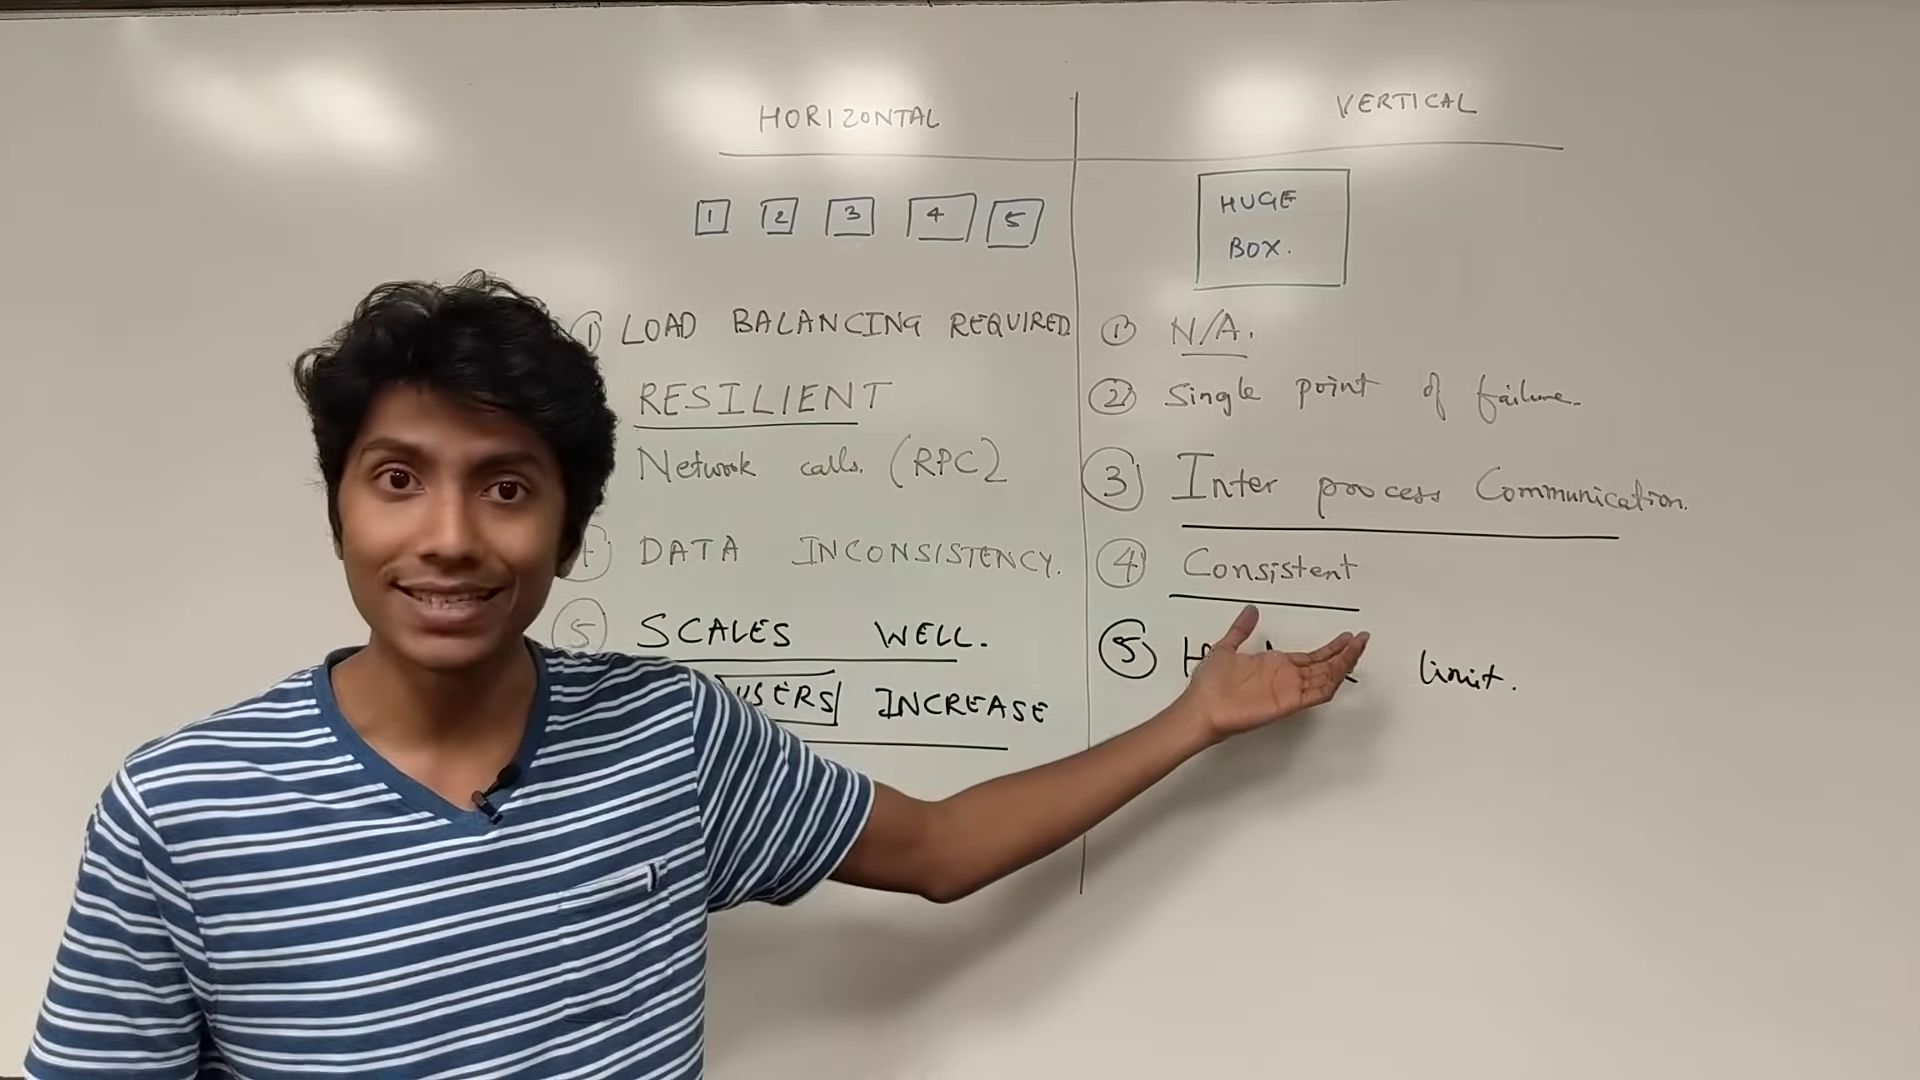 HORIZONTAL
1 2 3 4 5
① LOAD BALANCING REQUIRED
RESILIENT
Network calls. (RPC)
DATA INCONSISTENCY.
⑤ SCALES WELL.
USERS INCREASE
VERTICAL
HUGE
BOX.
① N/A.
② Single point of failure.
③ Inter process Communication.
④ Consistent
⑤ limit.